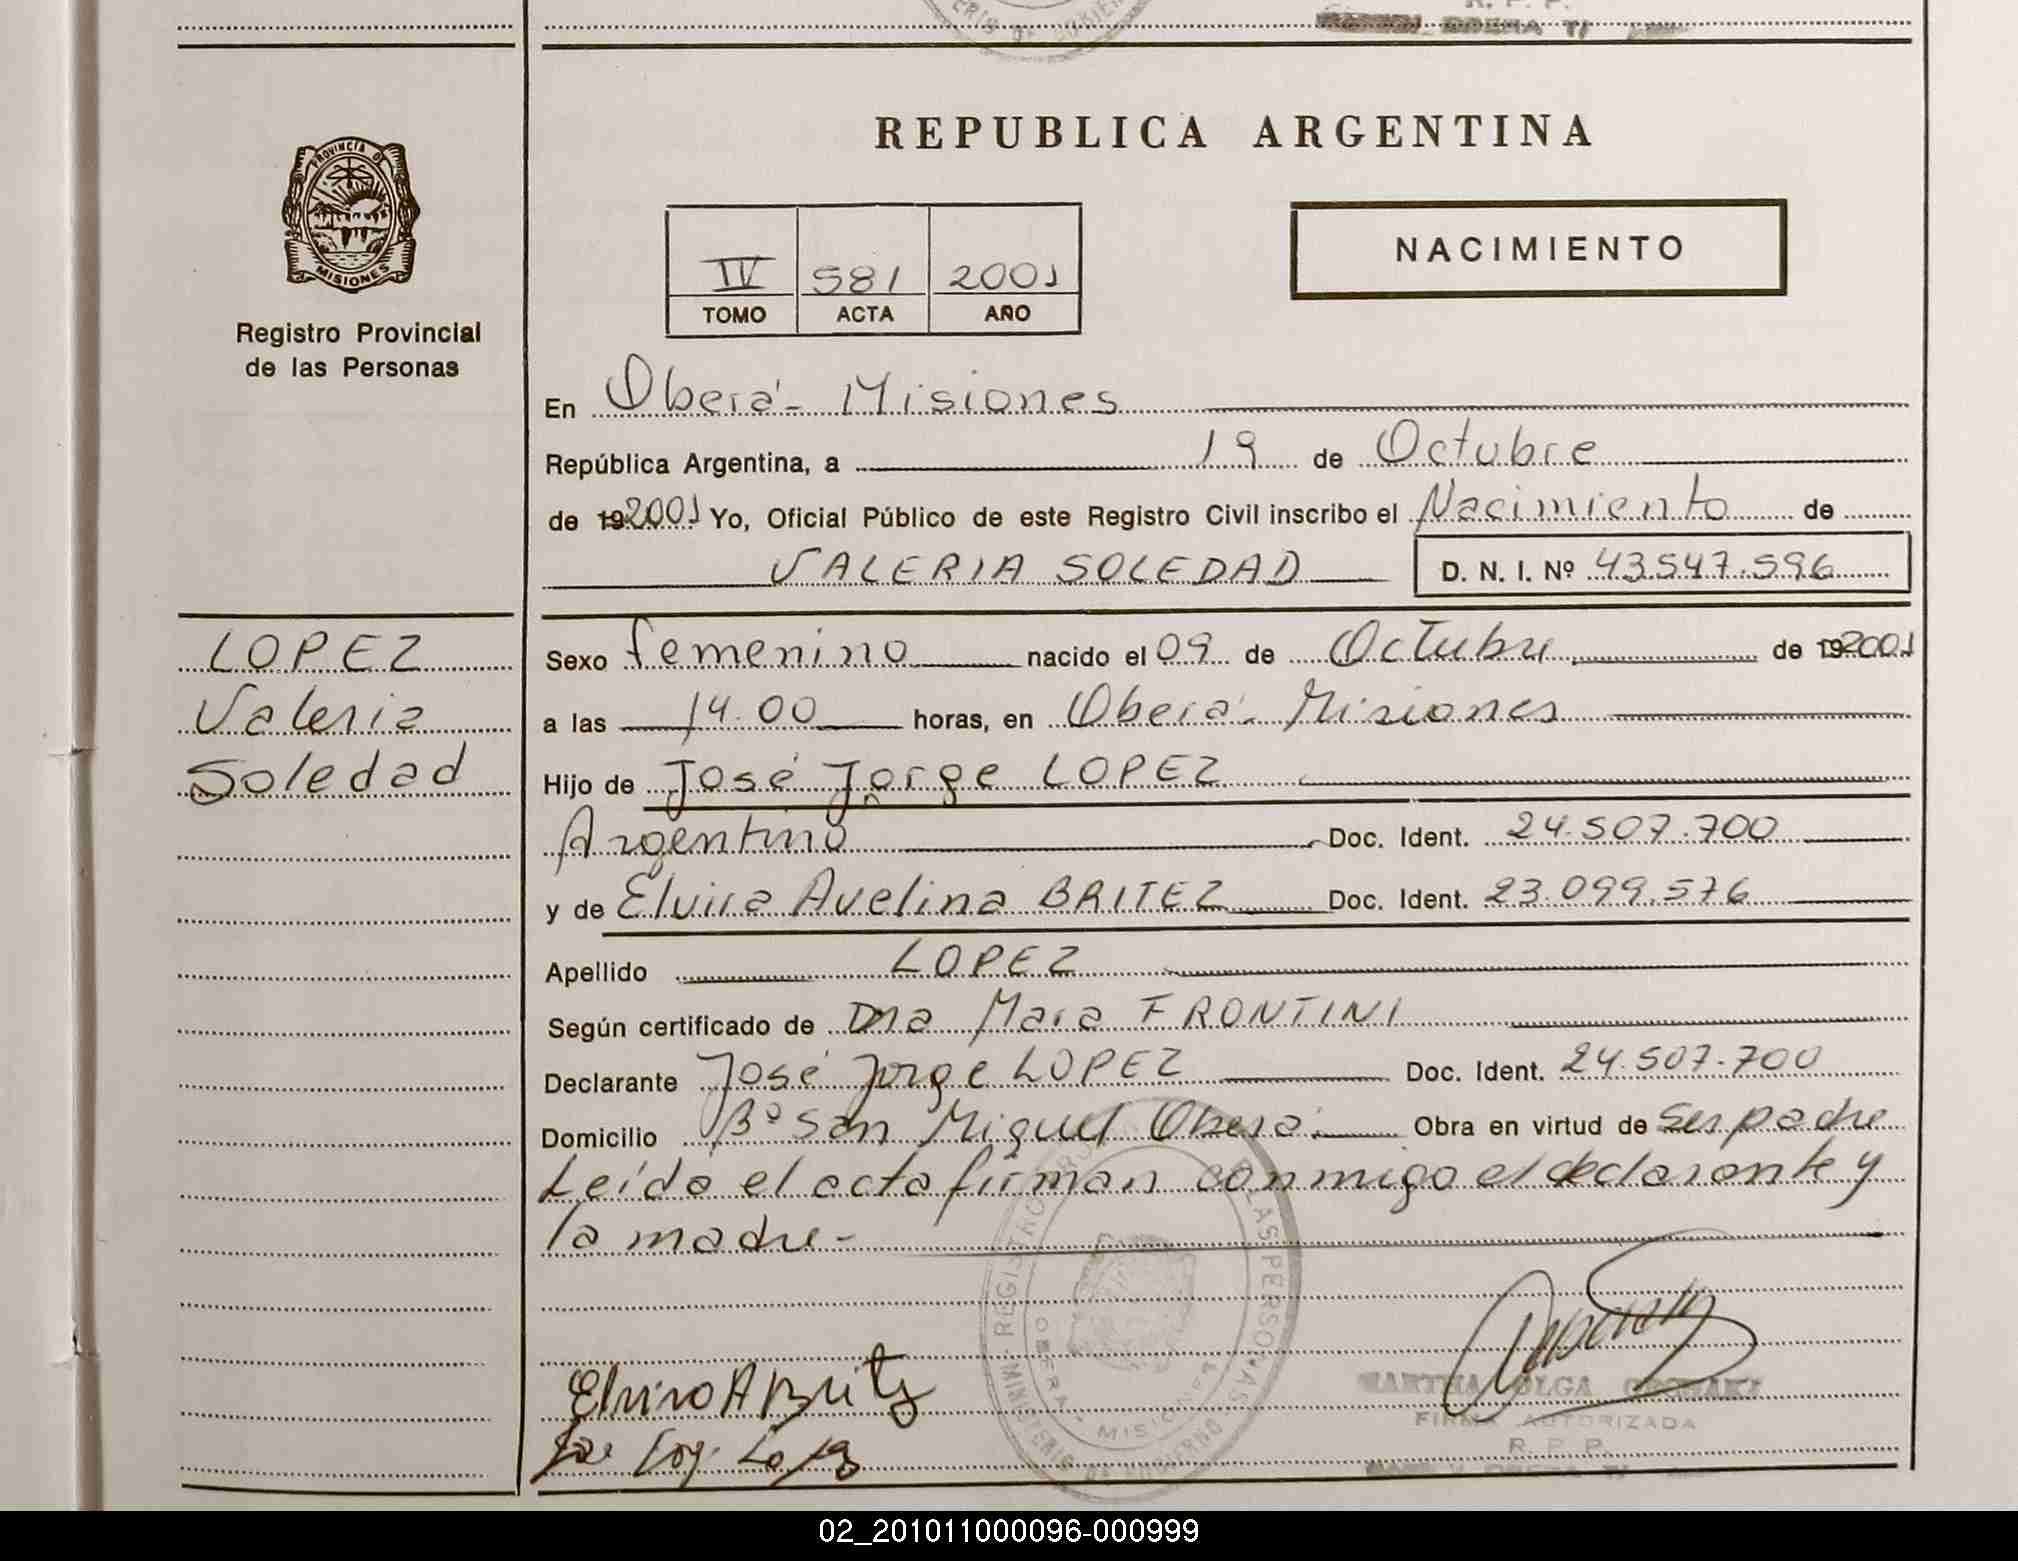 R. P. P.
PROVINCIA DE
MISIONES
Registro Provincial
de las Personas
REPUBLICA ARGENTINA
NACIMIENTO
IV 581 2001
TOMO ACTA AÑO
En Oberá - Misiones
República Argentina, a 19 de Octubre
de 19 2001 Yo, Oficial Público de este Registro Civil inscribo el Nacimiento de
VALERIA SOLEDAD D. N. I. Nº 43.547.596
LOPEZ
Valeria
Soledad
Sexo femenino nacido el 09 de Octubre de 19 2001
a las 14.00 horas, en Oberá - Misiones
Hijo de José Jorge LOPEZ
Argentino Doc. Ident. 24.507.700
y de Elvira Avelina BRITEZ Doc. Ident. 23.099.576
Apellido LOPEZ
Según certificado de Dra Mara FRONTINI
Declarante José Jorge LOPEZ Doc. Ident. 24.507.700
Domicilio Bº San Miguel Oberá. Obra en virtud de ser padre
Leída el acta firman conmigo el declarante y
la madre -
REGISTRO DE LAS PERSONAS
MINISTERIO DE GOBIERNO
OBERA - MISIONES
Elvira A Britez
MARTHA OLGA
FIRMA AUTORIZADA
R. P. P.
02_201011000096-000999